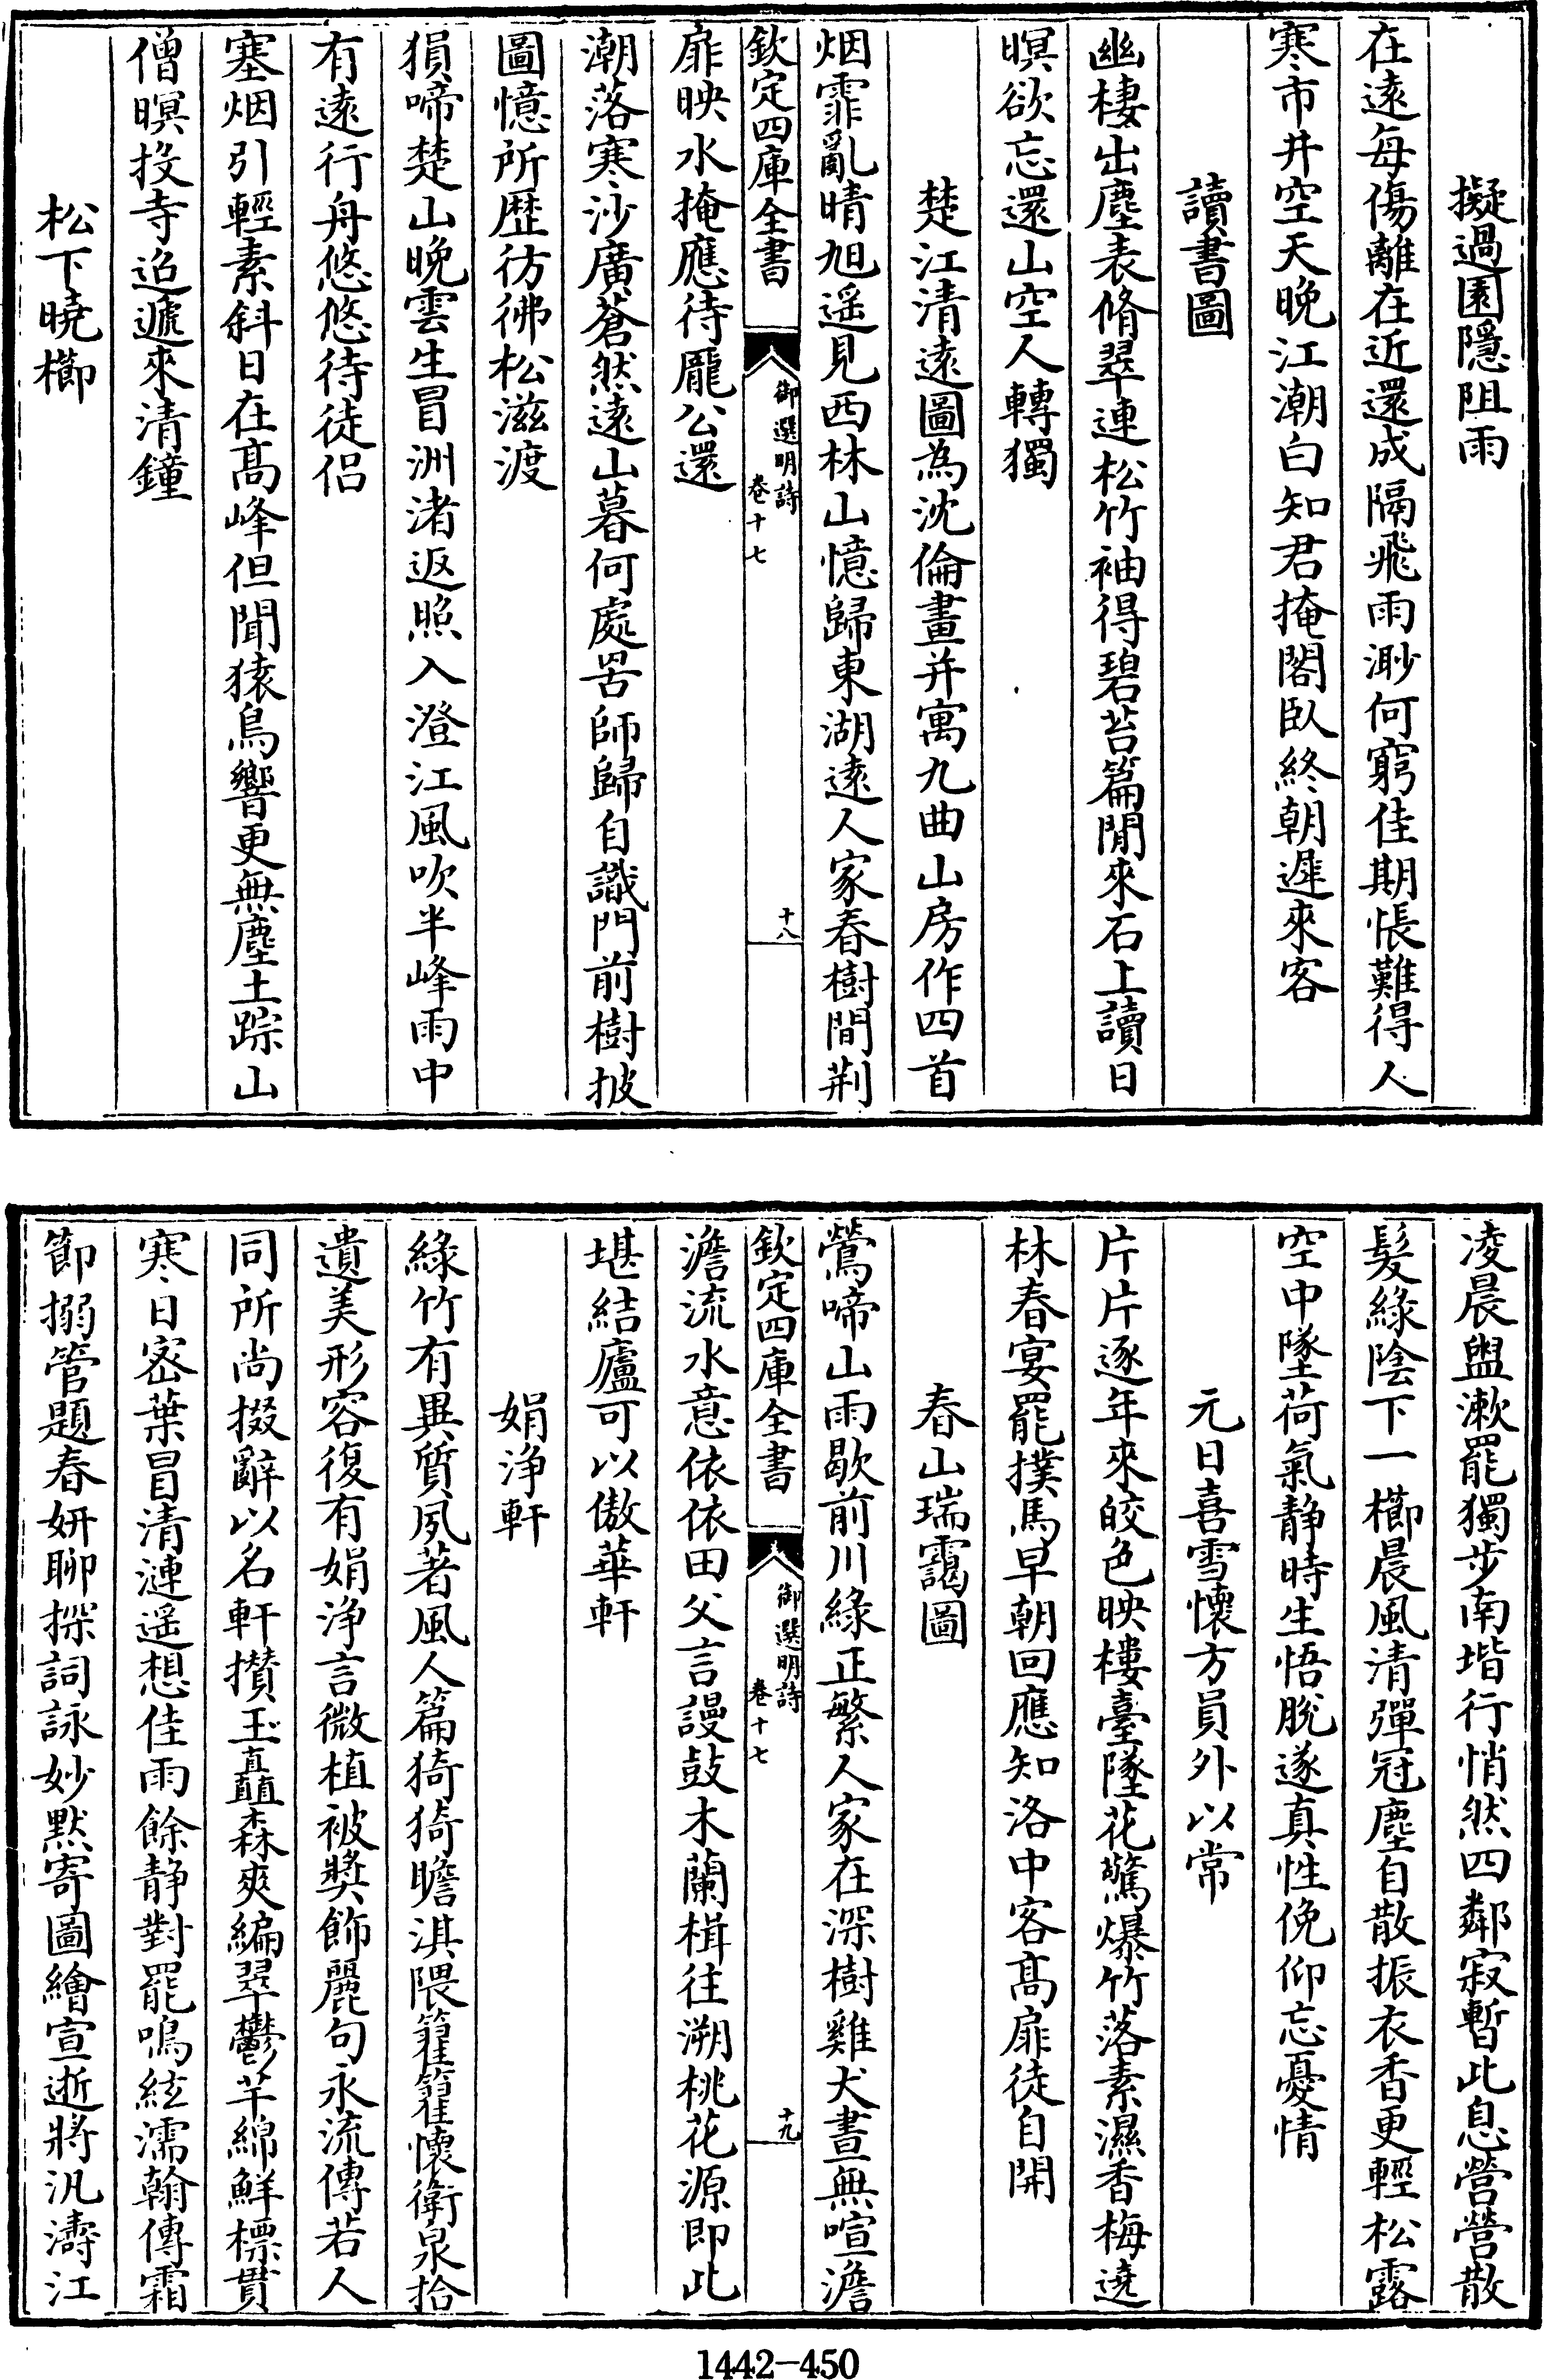 擬過園隱阻雨
在遠每傷離在近還成隔飛雨渺何窮佳期悵難得人
寒市井空天晚江潮白知君掩閣臥終朝遲來客
讀書圖
幽棲出塵表脩翠連松竹袖得碧苔篇閒來石上讀日
暝欲忘還山空人轉獨
楚江清遠圖為沈倫畫并寓九曲山房作四首
烟霏亂晴旭遥見西林山憶歸東湖遠人家春樹間荆
欽定四庫全書
御選明詩
卷十七
十八
扉映水掩應待龎公還
潮落寒沙廣蒼然遠山暮何處罟師歸自識門前樹披
圖憶所歴彷彿松滋渡
猿啼楚山晚雲生冒洲渚返照入澄江風吹半峰雨中
有遠行舟悠悠待徒侣
塞烟引輕素斜日在髙峰但聞猿鳥響更無塵土踪山
僧暝投寺迢遞來清鐘
松下曉櫛
凌晨盥漱罷獨步南堦行悄然四鄰寂暫此息營營散
髮緑陰下一櫛晨風清彈冠塵自散振衣香更輕松露
空中墜荷氣静時生悟脱遂真性俛仰忘憂情
元日喜雪懷方員外以常
片片逐年來皎色映樓臺墜花驚爆竹落素濕香梅遶
林春宴罷撲馬早朝回應知洛中客髙扉徒自開
春山瑞靄圖
鶯啼山雨歇前川緑正繁人家在深樹雞犬晝無喧澹
欽定四庫全書
御選明詩
卷十七
十九
澹流水意依依田父言謾鼓木蘭楫往溯桃花源即此
堪結廬可以傲華軒
娟浄軒
緑竹有異質夙著風人篇猗猗瞻淇隈籊籊懷衛泉拾
遺美形容復有娟浄言微植被奬飾麗句永流傳若人
同所尚掇辭以名軒攅玉矗森爽編翠鬱芊綿鮮標貫
寒日宻葉冒清漣遥想佳雨餘静對罷鳴絃濡翰傳霜
節搦管題春妍聊探詞詠妙默寄圖繪宣逝將汎濤江
1442-450